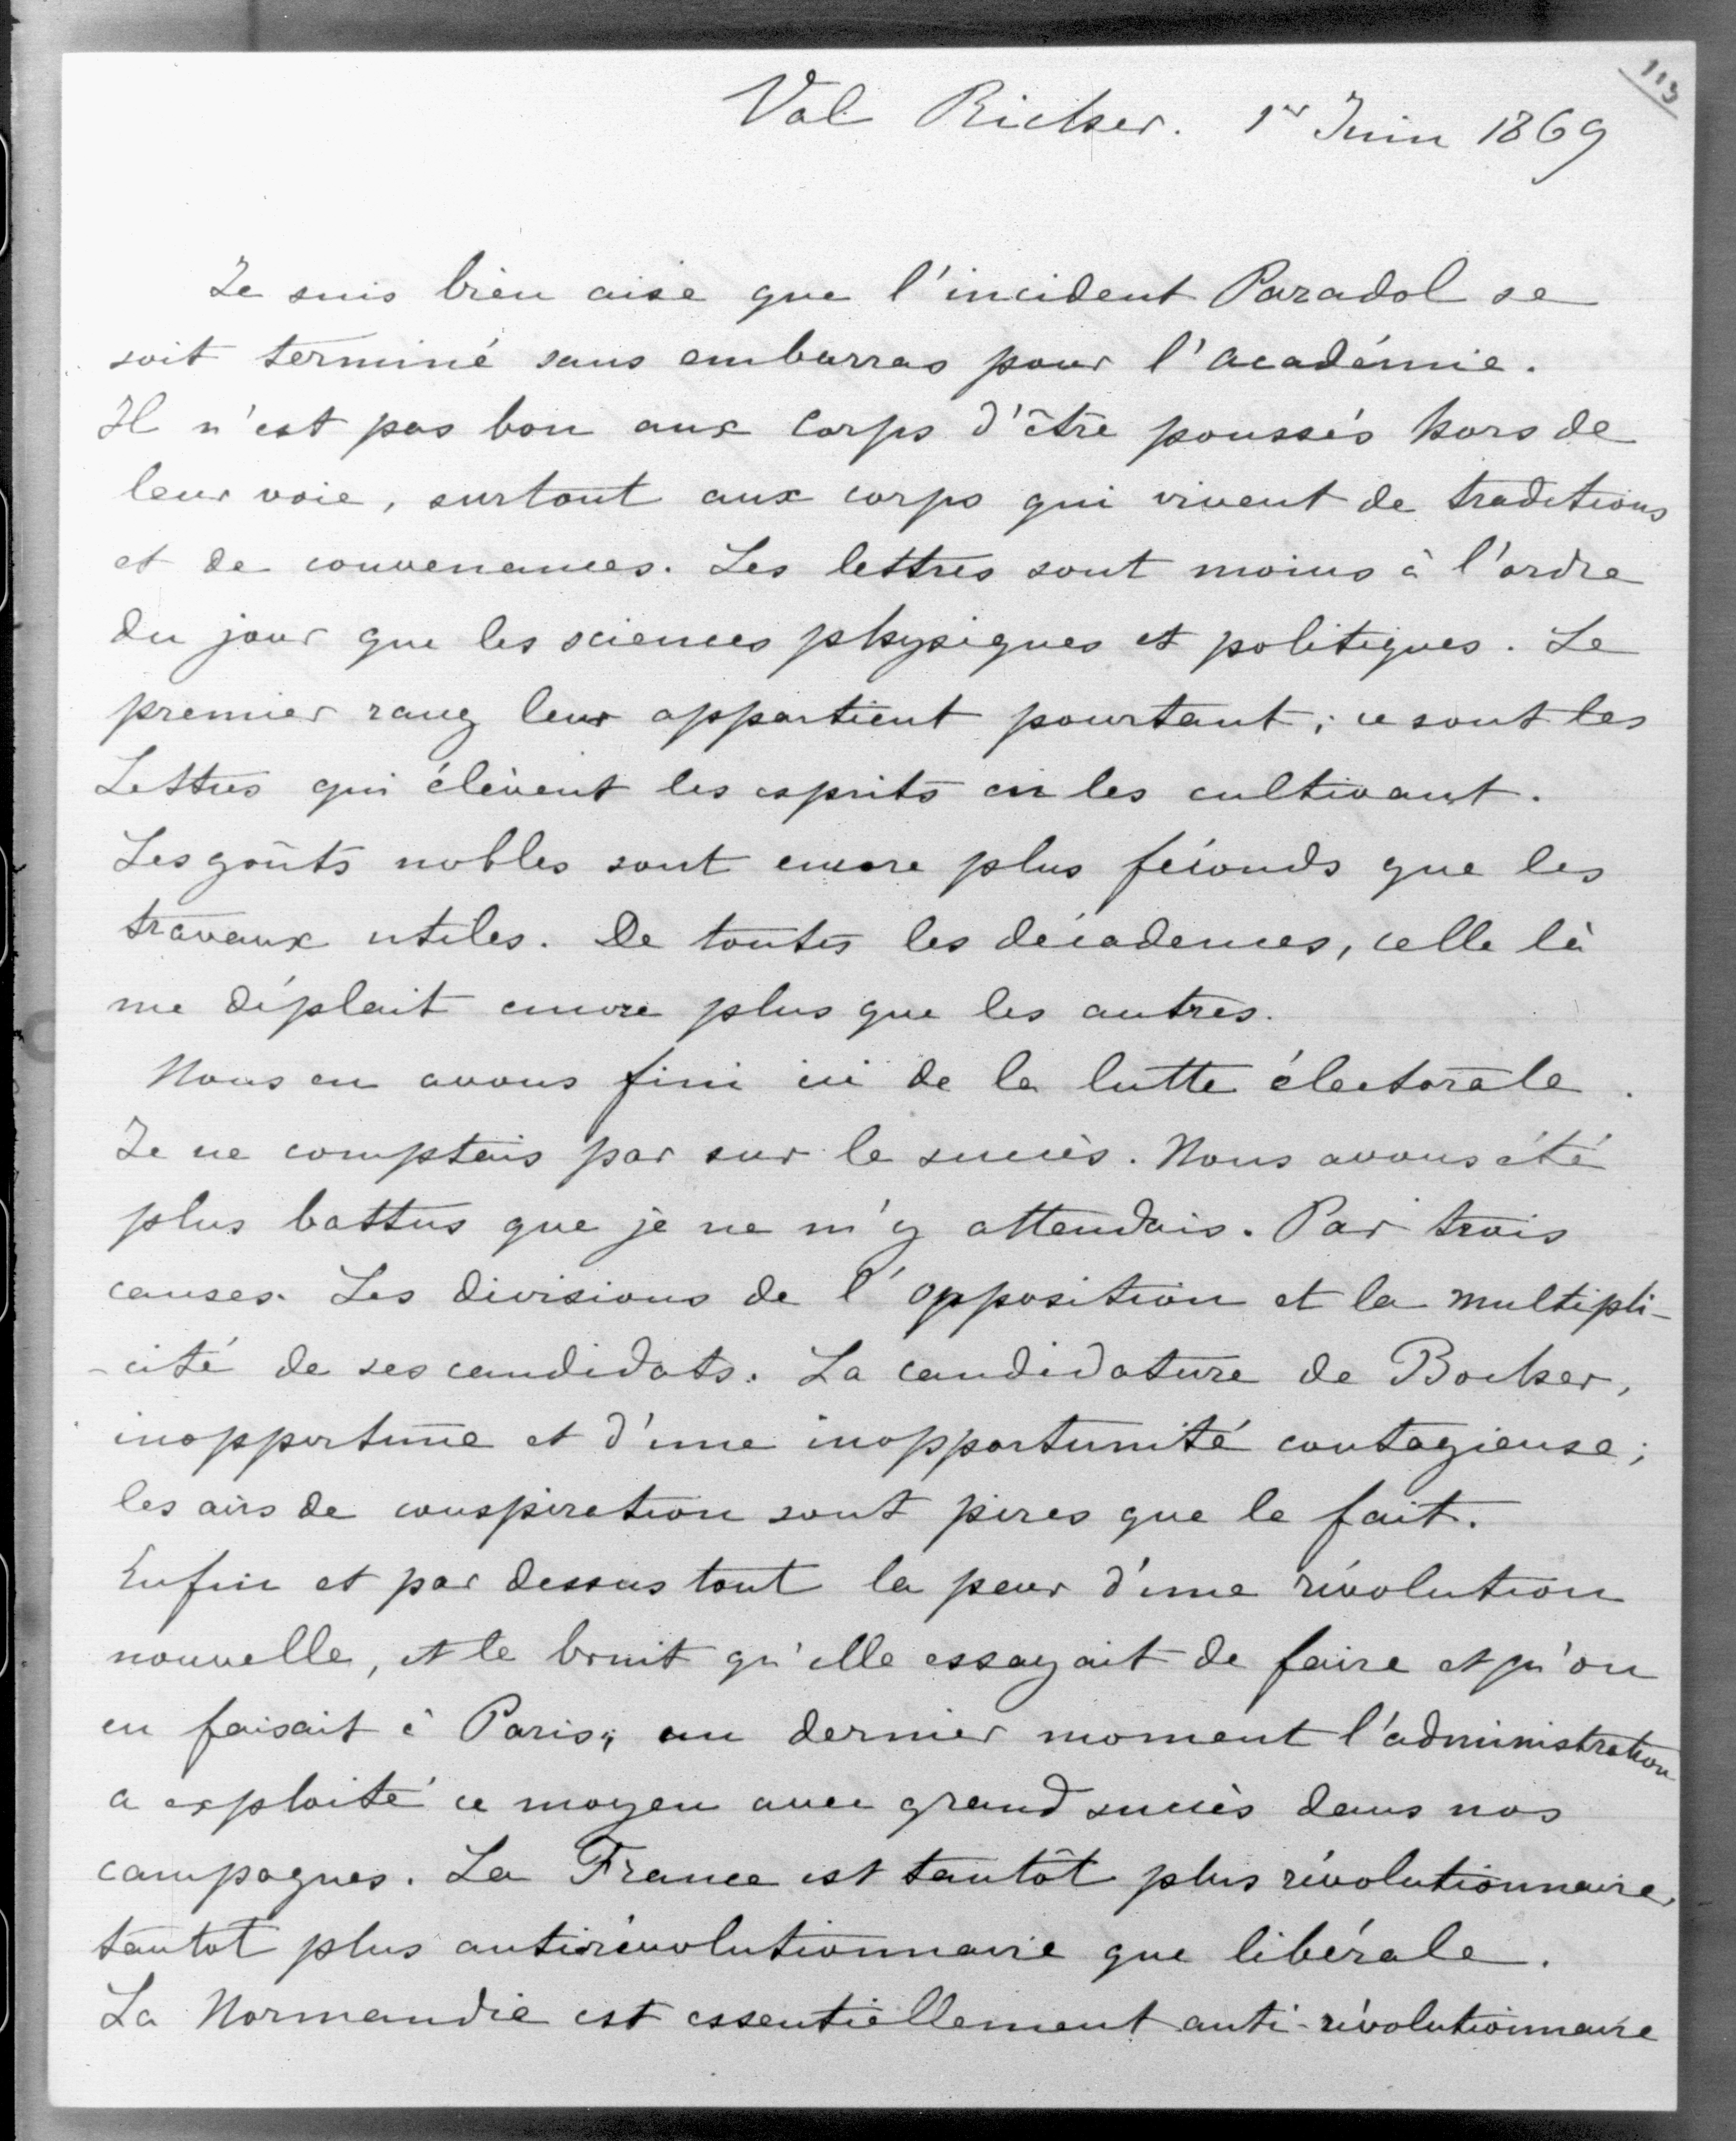 113
Val Richer. 1er Juin 1869
Je suis bien aise que l'incident Paradol se
soit terminé sans embarras pour l'académie.
Il n'est pas bon aux corps d'être poussés hors de
leur voie, surtout aux corps qui vivent de traditions
et de convenances. Les lettres sont moins à l'ordre
du jour que les sciences physiques et politiques. Le
premier rang leur appartient pourtant ; ce sont les
Lettres qui élèvent les esprits en les cultivant.
Les goûts nobles sont encore plus féconds que les
travaux utiles. De toutes les décadences, celle là
me déplait encore plus que les autres.
Nous en avons fini ici de la lutte électorale.
Je ne comptais pas sur le succès. Nous avons été
plus battus que je ne m'y attendais. Par trois
causes. Les divisions de l'opposition et la multipli-
-cité de ses candidats. La candidature de Bocher,
inopportune et d'une inopportunité contagieuse ;
les airs de conspiration sont pires que le fait.
Enfin et par dessus tout la peur d'une révolution
nouvelle, et le bruit qu'elle essayait de faire et qu'on
en faisait à Paris ; au dernier moment l'administration
a exploité ce moyen avec grand succès dans nos
campagnes. La France est tantôt plus révolutionnaire,
tantot plus antirévolutionnaire que libérale.
La Normandie est essentiellement anti-révolutionnaire